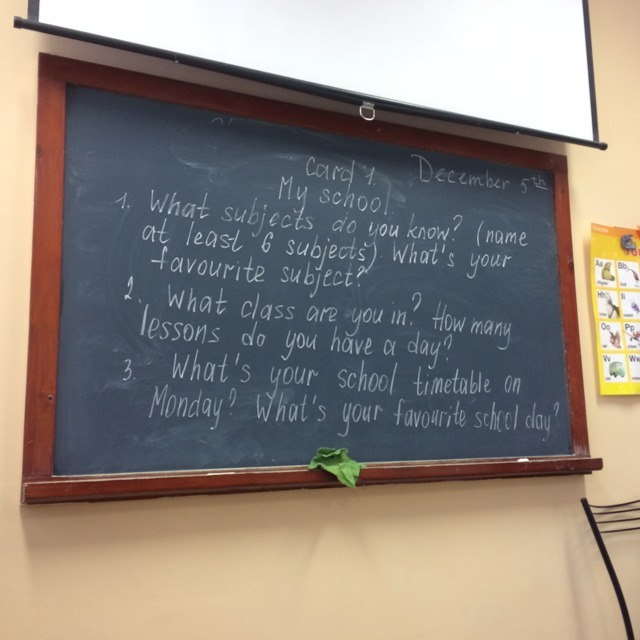 Card 1. December 5th
My school.
1. What subjects do you know? (name
at least 6 subjects) What's your
favourite subject?
2. What class are you in? How many
lessons do you have a day?
3. What's your school timetable on
Monday? What's your favourite school day?
Aa Bb
Hh Ii
Oo Pp
Vv Ww